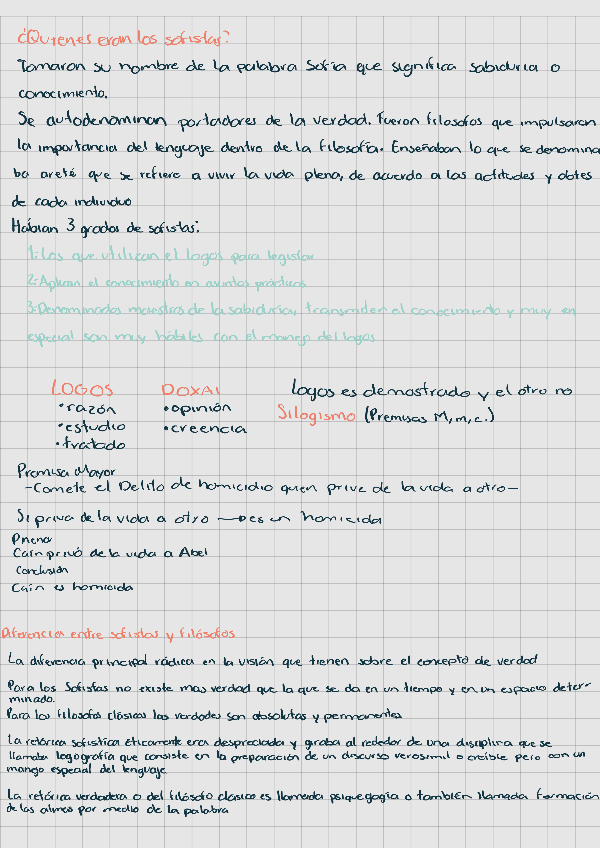 ¿Quienes eran los sofistas?
Tomaron su nombre de la palabra Sofía que significa sabiduria o
conocimiento.
Se autodenominan portadores de la verdad. Fueron filosofos que impulsaron
la importancia del lenguaje dentro de la Filosofía. Enseñaban lo que se denomina
ba areté que se refiere a vivir la vida plena, de acuerdo a las actitudes y
de cada individuo
Habian 3 grados de sofistas:
1: Los que utilizan el logos para legislar
2: Aplican el conocimiento en asuntos prácticos
3: Denominados maestros de la sabiduria, transmiten el conocimiento y muy en
especial son muy hábiles con el manejo del logos
LOGOS DOXAI Logos es demostrado y el otro no
•razón •opinión Silogismo (Premisas M, m, c.)
•estudio •creencia
•tratado
Premisa Mayor
-Comete el Delito de homicidio quien prive de la vida a otro-
Si priva de la vida a otro → es un homicida
Caín privó de la vida a Abel
Conclusión
Caín es homicida
Diferencia entre sofistas y filósofos
La diferencia principal rádica en la visión que tienen sobre el concepto de verdad
Para los Sofistas no existe mas verdad que la que se da en un tiempo y en un espacio deter-
minado.
Para los filosofos clásicos las verdades son absolutas y permanentes
La retórica sofistica éticamente era despreciada y giraba al rededor de una disciplina que se
llamaba logografía que consiste en la preparación de un discurso verosimil o creíble pero con un
manejo especial del lenguaje
La retórica verdadera o del filósofo clásico es llamada psiquegogía o también llamada formación
de las almas por medio de la palabra